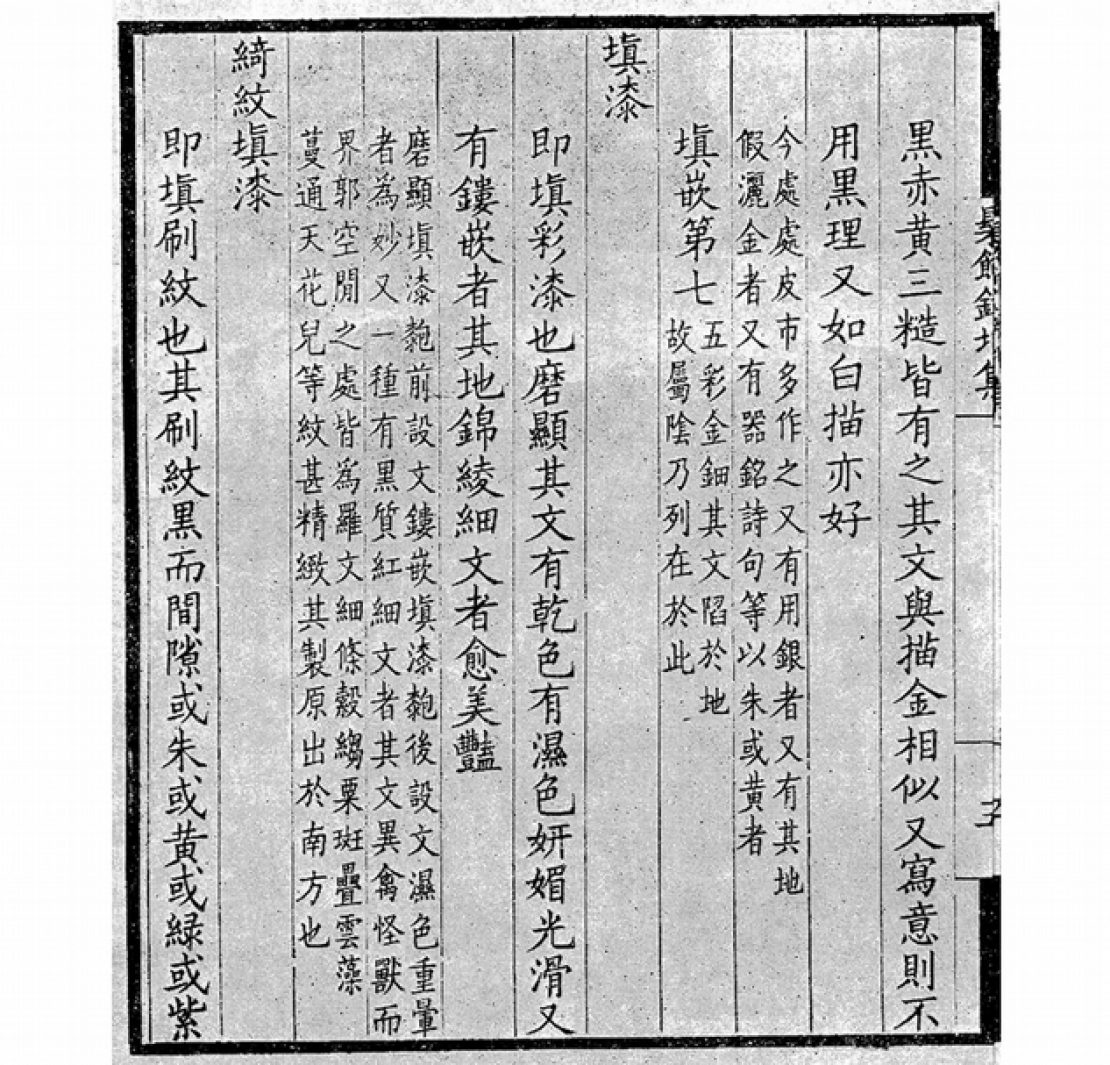 黑赤黄三糙皆有之其文與描金相似又寫意則不
用黑理又如白描亦好
今處處皮市多作之又有用銀者又有其地
假灑金者又有器銘詩句等以朱或黄者
填嵌第七
五彩金鈿其文陷於地
故屬陰乃列在於此
填漆
即填彩漆也磨顯其文有乾色有濕色妍媚光滑又
有鏤嵌者其地錦綾細文者愈美豔
磨顯填漆𩊱前設文鏤嵌填漆𩊱後設文濕色重暈
者爲妙又一種有黑質紅細文者其文異禽怪獸而
界郭空閒之處皆爲羅文細條縠縐粟斑疊雲藻
蔓通天花兒等紋甚精緻其製原出於南方也
綺紋填漆
即填刷紋也其刷紋黑而間隙或朱或黄或緑或紫